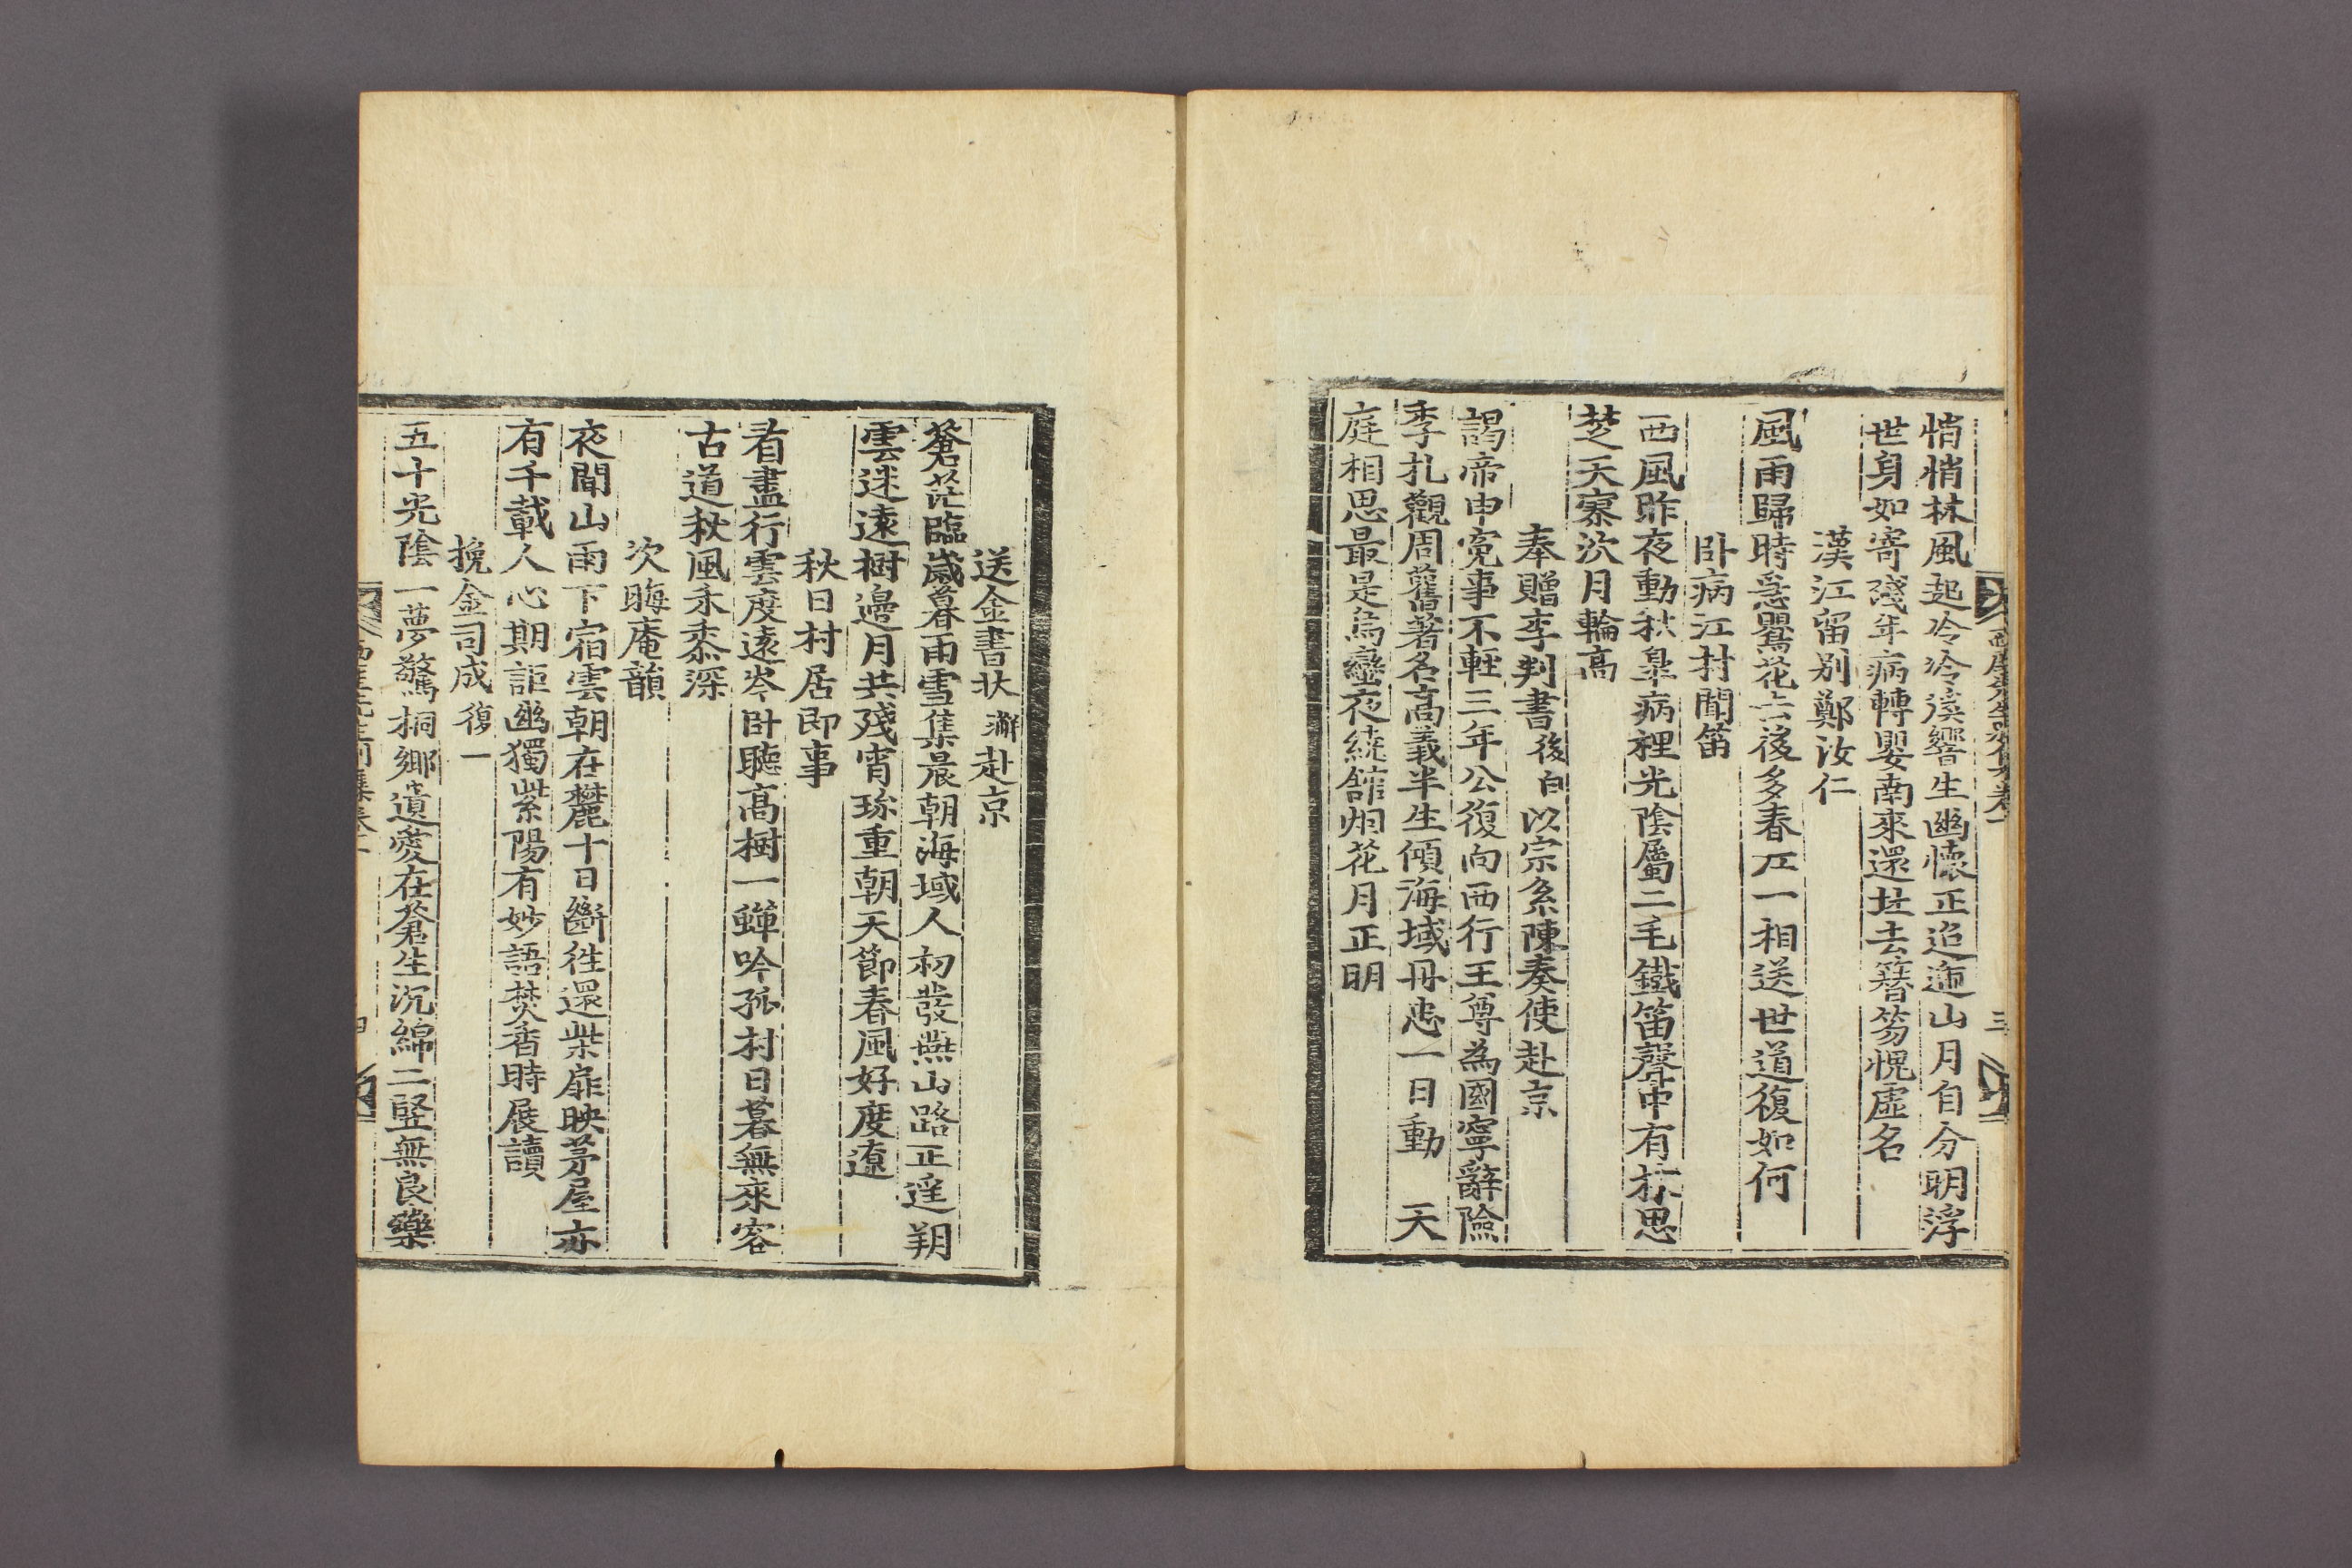 悄悄林風起冷冷溪響生幽懷正迢遞山月自分明浮
世身如寄殘年病轉嬰南來還北去簪笏愧虛名
漢江留别鄭汝仁
風雨歸時急鸎花去後多春江一相送世道復如何
卧病江村聞笛
西風昨夜動秋臯病裡光陰屬二毛鐵笛聲中有所思
楚天寥泬月輪高
奉贈李判書後白以宗系陳奏使赴京
謁帝申寃事不輕三年公復向西行王尊為國寧辭險
季札觀周舊著名高義半生傾海域丹忠一日動　天
庭相思最是烏蠻夜繞舘烟花月正明
三
送金書状澥赴京
蒼茫臨歲暮雨雪集晨朝海域人初發燕山路正遥朔
雲迷遠樹邉月共殘宵珎重朝天節春風好度遼
秋日村居即事
看盡行雲度遠岑卧聽高樹一蟬吟孤村日暮無來客
古道秋風禾黍深
次晦庵韻
夜聞山雨下宿雲朝在麓十日斷徃還柴扉映茅屋亦
有千載人心期詎幽獨紫陽有妙語焚香時展讀
挽金司成復一
五十光陰一夢驚桐鄉遺愛在蒼生沉綿二竪無良藥